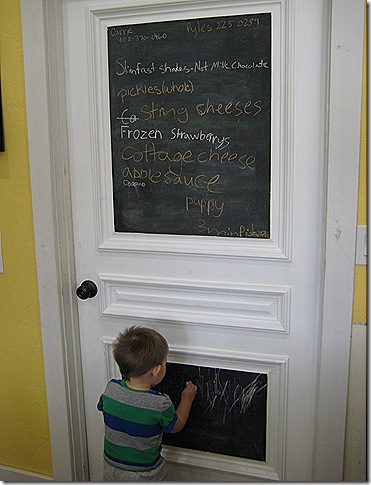 Carrie Pyles 125-0289
Slimfast shakes-Not Milk Chocolate
pickles(whole)
Co String cheeses
Frozen Strawberrys
Cottage cheese
applesauce
puppy
3 min Pizzas